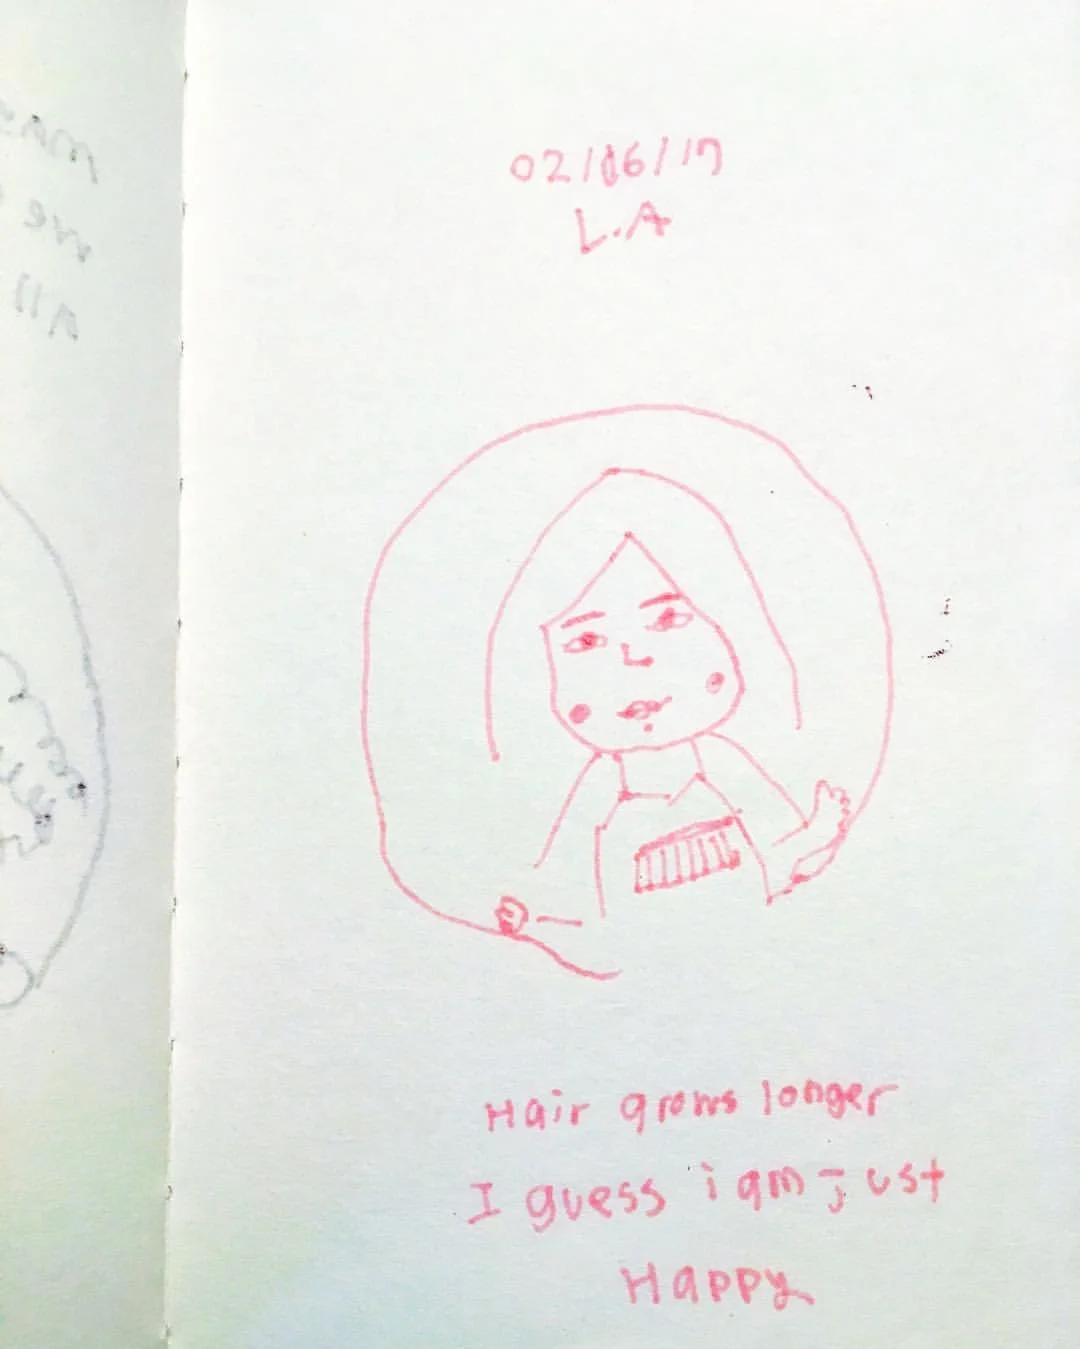 02/06/17
L.A
Hair grows longer
I guess i am just
Happy